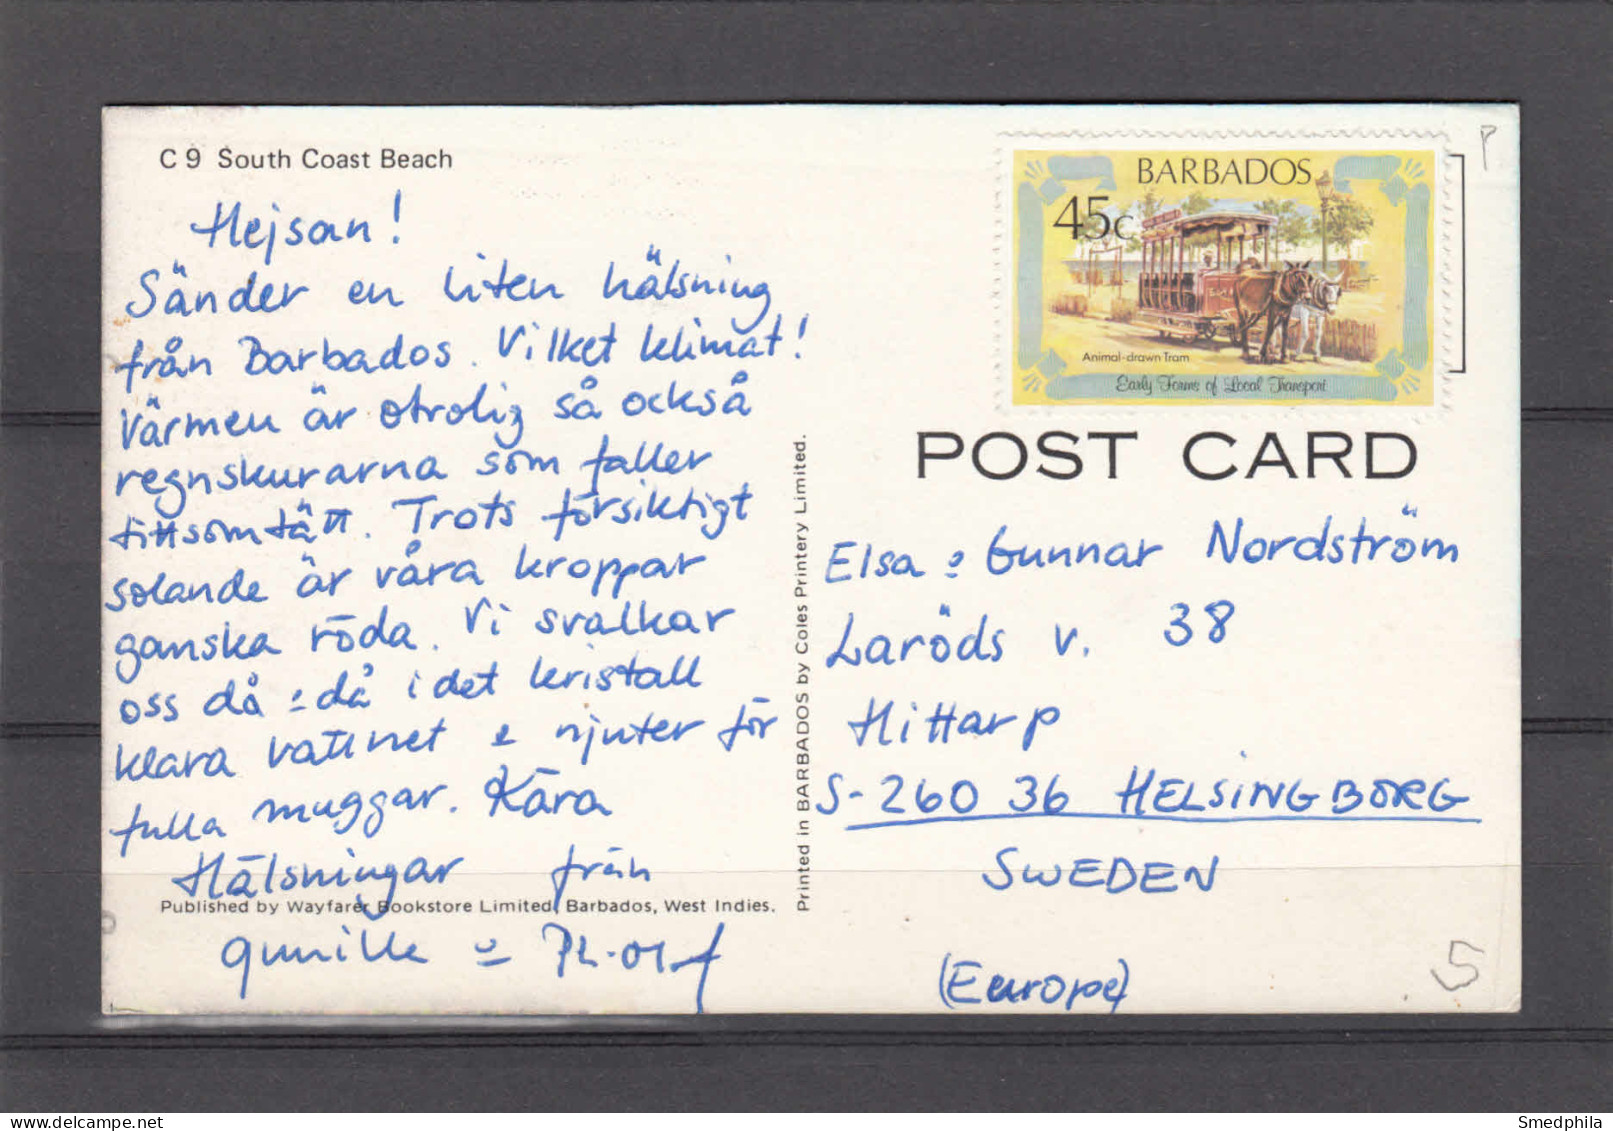 C 9 South Coast Beach
Hejsan!
Sänder en liten hälsning
från Barbados. Vilket klimat!
Värmen är otrolig så också
regnskurarna som faller
titt som tätt. Trots försiktigt
solande är våra kroppar
ganska röda. Vi svalkar
oss då o då i det kristall
klara vattnet o njuter för
fulla muggar. Kära
Hälsningar från
Published by Wayfarer Bookstore Limited, Barbados, West Indies.
Gunilla o
Printed in BARBADOS by Coles Printery Limited.
BARBADOS
45c
Animal-drawn Tram
Early Forms of Local Transport
P
POST CARD
Elsa o Gunnar Nordström
Laröds v. 38
Hittarp
S-260 36 HELSINGBORG
SWEDEN
(Europe)
5
Smedphila